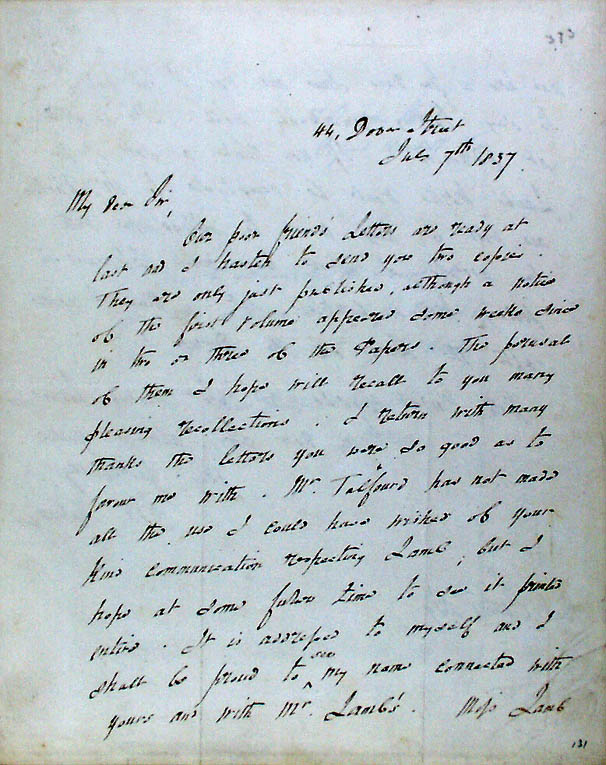 373
44, Dover Street
July 7th 1837.
My dear Sir,
Our poor friend's Letters are ready at
last and I hasten to send you two copies.
They are only just published, although a notice
of the first volume appeared some weeks since
in two or three of the Papers. The perusal
of them I hope will recall to you many
pleasing recollections. I return with many
thanks the letters you were so good as to
favour me with. Mr. Talfourd has not made
all the use I could have wished of your
kind communication respecting Lamb, but I
hope at some future time to see it printed
entire. It is addressed to myself and I
shall be proud to see my name connected with
yours and with Mr. Lamb's. Miss Lamb
131